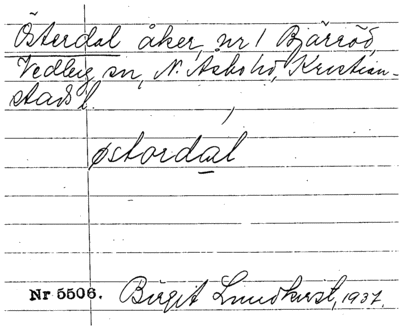 Österdal åker, nr 1 Bjärröd,
Vedby sn, N. Åsbo hd, Kristian-
stads l.
østordal
Nr 5506. Birgit Lundkvist, 1937.